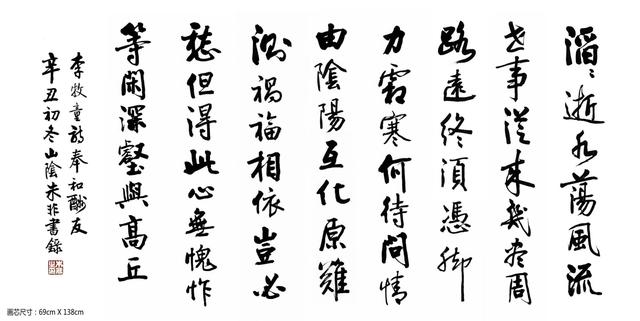 滔〻逝水蕩風流
世事從来幾尽周
路遠終須憑脚
力霜寒何待問情
由陰陽互化原難
測禍福相依豈必
愁但得此心無愧怍
等閑深壑與高丘
李牧童韵奉和酬友
辛丑初冬山陰朱非書錄
画芯尺寸：69cm X 138cm